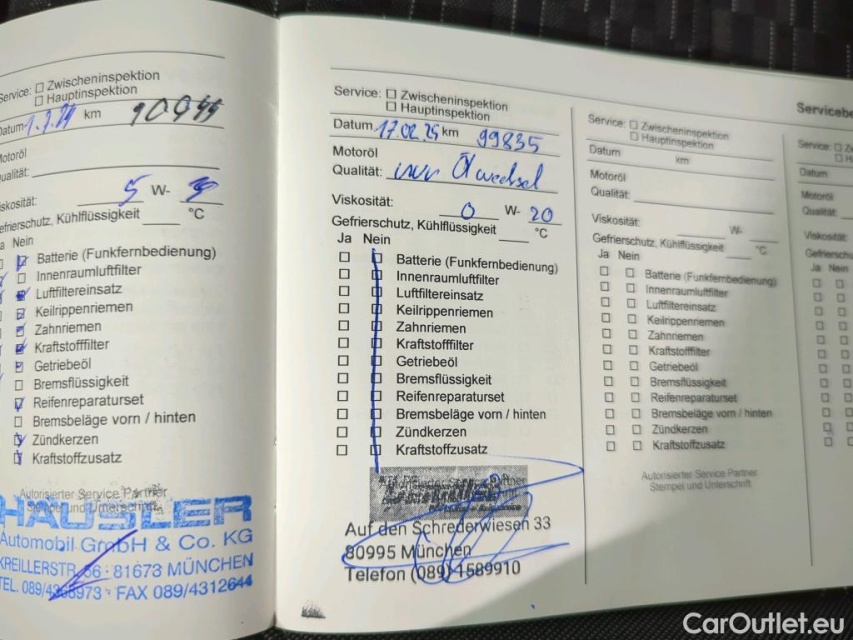 Service: Zwischeninspektion
Hauptinspektion
Datum 1.7.21 km
Motoröl
Qualität:
5 W-
Viskosität:
Gefrierschutz, Kühlflüssigkeit °C
Ja Nein
Batterie (Funkfernbedienung)
Innenraumluftfilter
Luftfiltereinsatz
Keilrippenriemen
Zahnriemen
Kraftstofffilter
Getriebeöl
Bremsflüssigkeit
Reifenreparaturset
Bremsbeläge vorn / hinten
Zündkerzen
Kraftstoffzusatz
Autorisierter Service Partner
Stempel und Unterschrift
HÄUSLER
Automobil GmbH & Co. KG
KREILLERSTR. 56 · 81673 MÜNCHEN
TEL. 089/4368973 · FAX 089/4312644
Service: Zwischeninspektion
Hauptinspektion
Datum 17.02.25 km 99835
Motoröl
Qualität: nur Ölwechsel
Viskosität: 0 W- 20
Gefrierschutz, Kühlflüssigkeit °C
Ja Nein
Batterie (Funkfernbedienung)
Innenraumluftfilter
Luftfiltereinsatz
Keilrippenriemen
Zahnriemen
Kraftstofffilter
Getriebeöl
Bremsflüssigkeit
Reifenreparaturset
Bremsbeläge vorn / hinten
Zündkerzen
Kraftstoffzusatz
Auf den Schrederwiesen 33
80995 München
Telefon (089) 1589910
Service: Zwischeninspektion
Hauptinspektion
Datum km
Motoröl
Qualität:
Viskosität: W-
Gefrierschutz, Kühlflüssigkeit °C
Ja Nein
Batterie (Funkfernbedienung)
Innenraumluftfilter
Luftfiltereinsatz
Keilrippenriemen
Zahnriemen
Kraftstofffilter
Getriebeöl
Bremsflüssigkeit
Reifenreparaturset
Bremsbeläge vorn / hinten
Zündkerzen
Kraftstoffzusatz
Autorisierter Service Partner
Stempel und Unterschrift
Serviceb
Service:
Datum
Motoröl
Qualität:
Viskosität:
Ja Nein
CarOutlet.eu